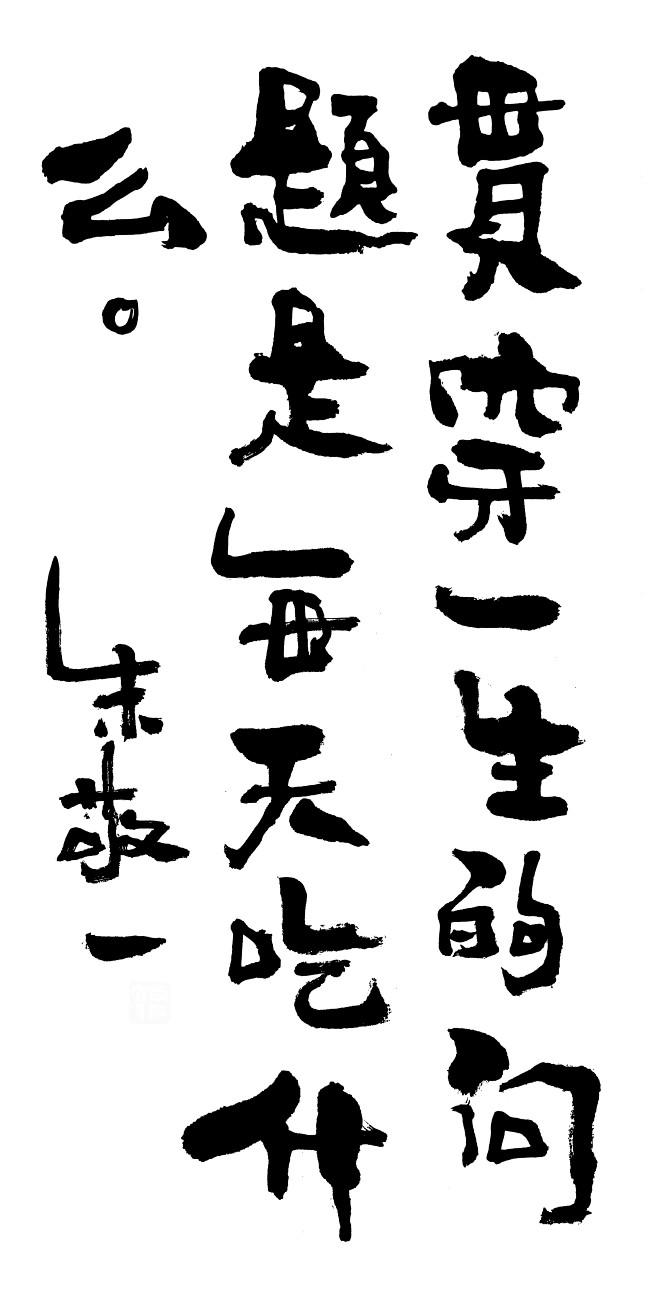 貫穿一生的问
題是每天吃什
么。
朱敬一